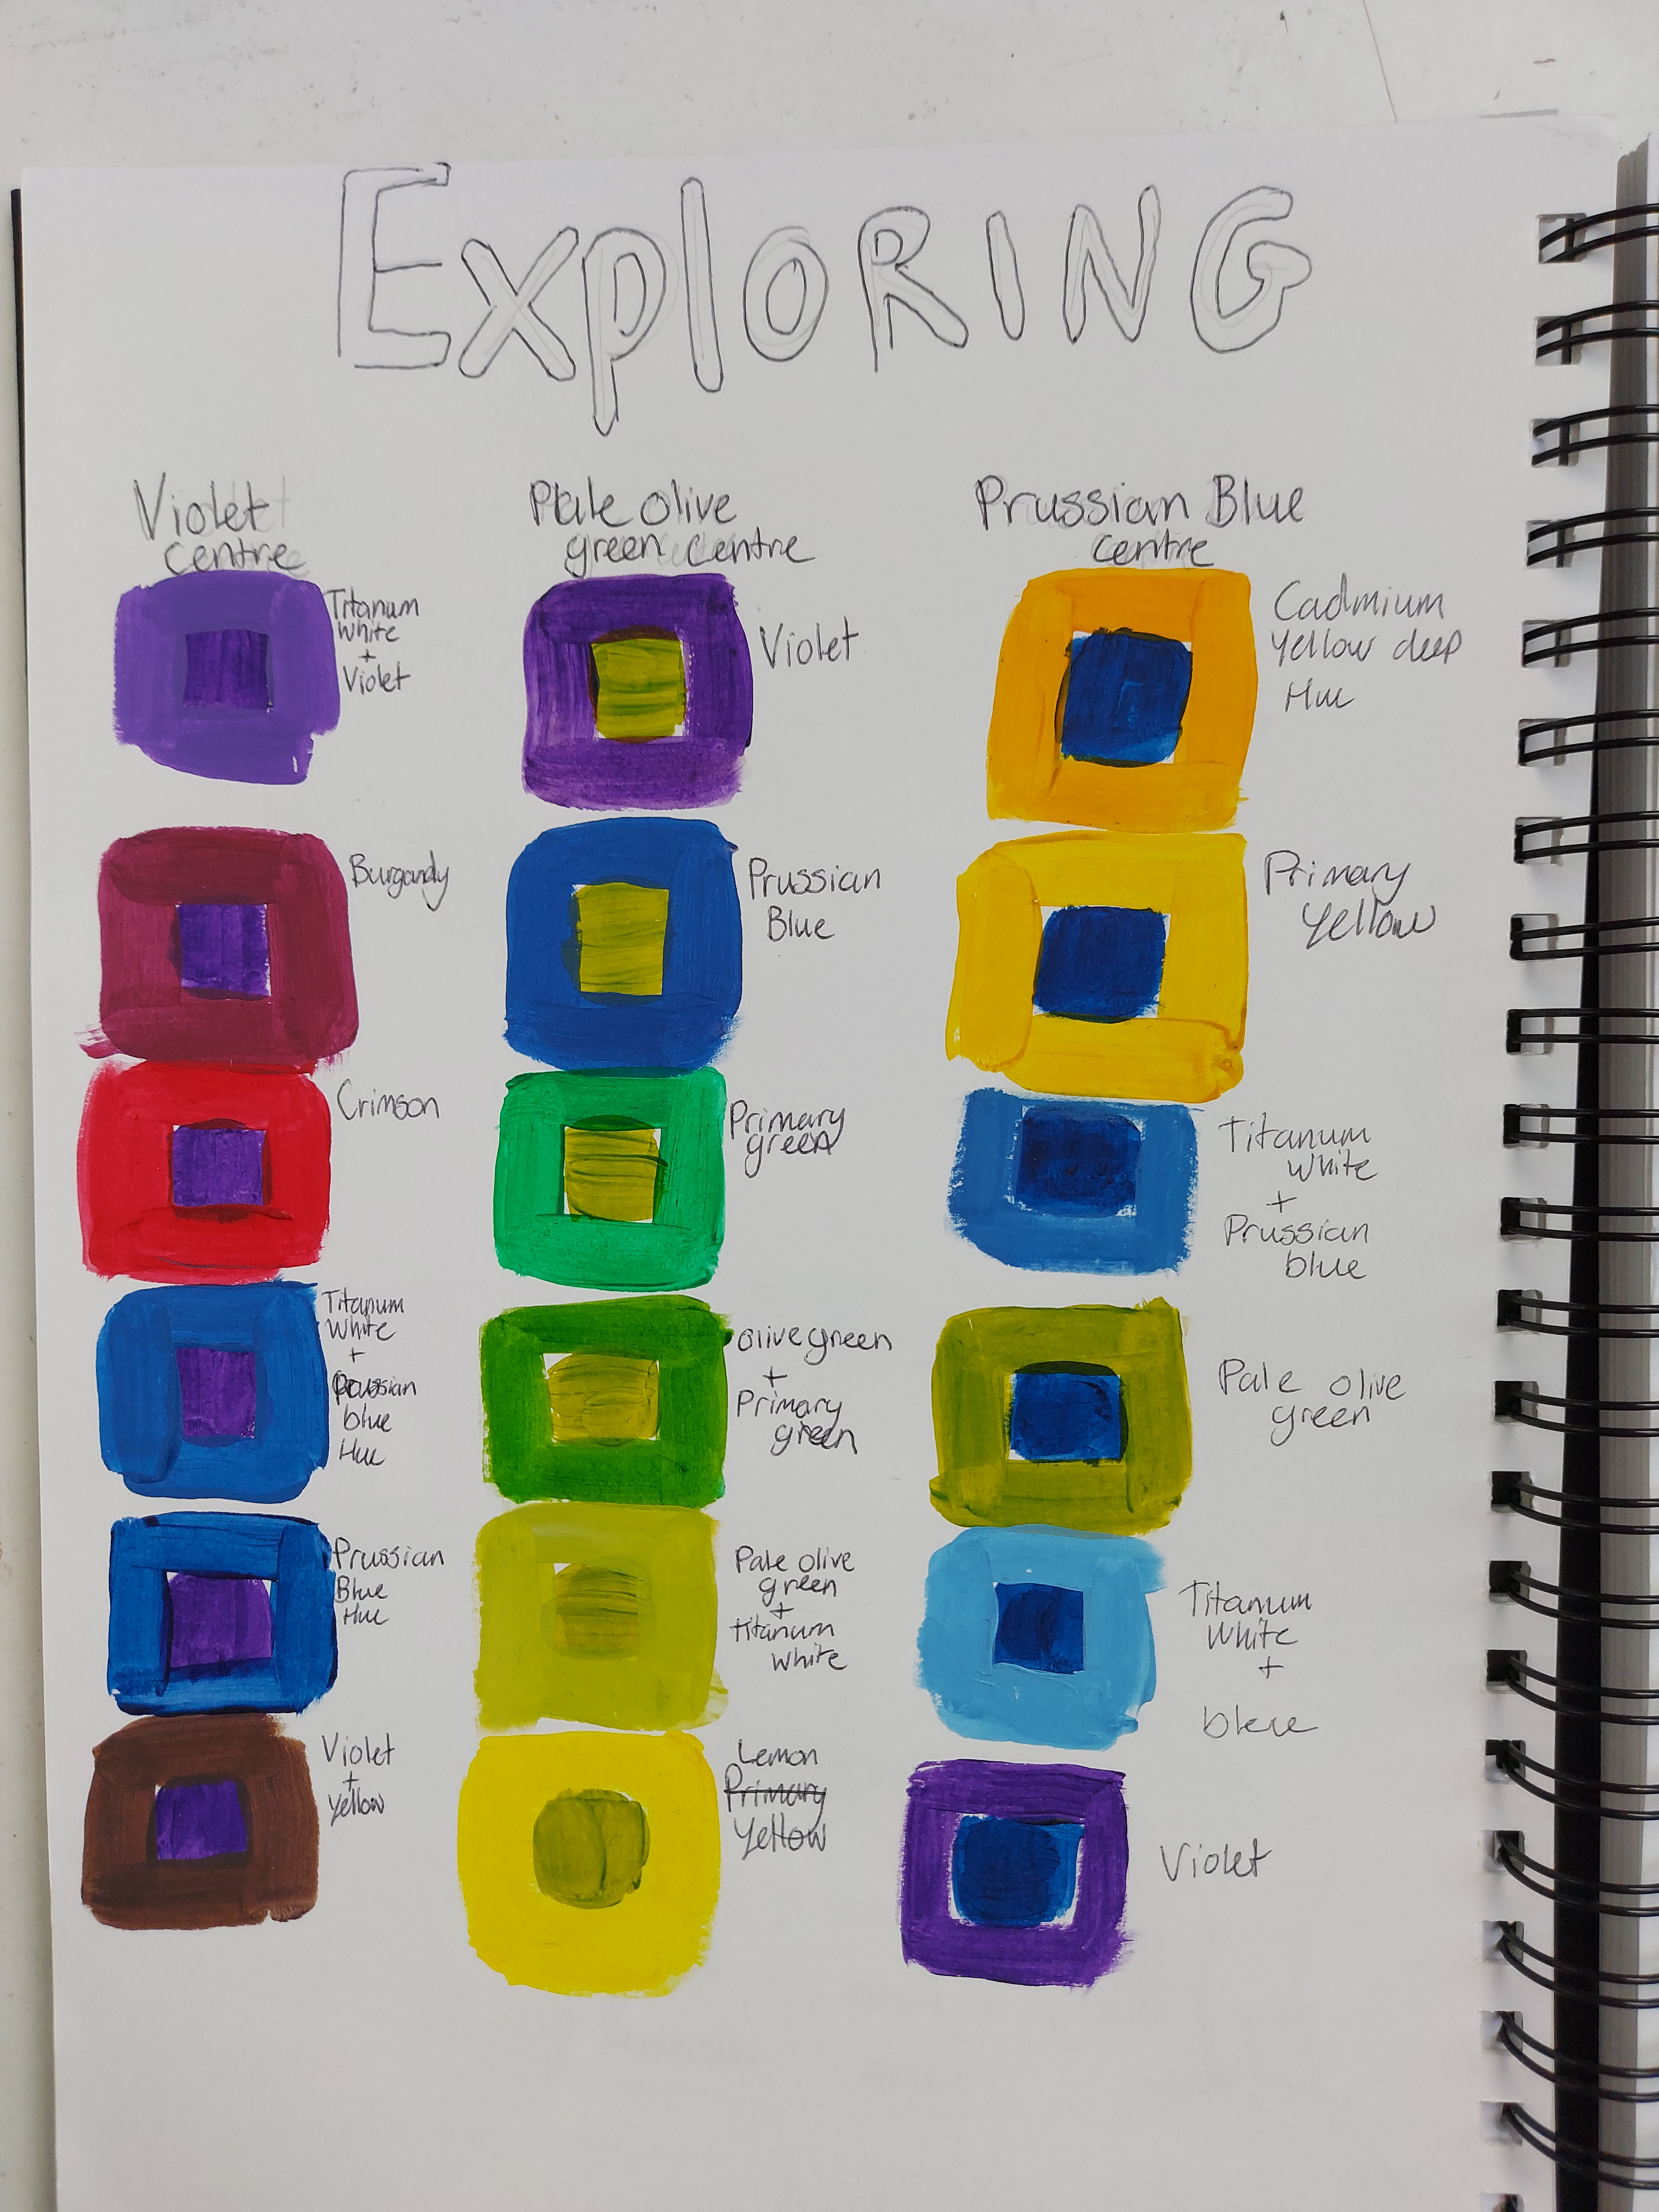 ExploRING
Violet
centre
Titanum
White
+
Violet
Burgandy
Crimson
Titanum
White
+
Prussian
blue
Hue
Prussian
Blue
Hue
Violet
+
Yellow
Pale olive
green centre
Violet
Prussian
Blue
Primary
green
olive green
+
Primary
green
Pale olive
green
+
titanum
white
Lemon
Primary
Yellow
Prussian Blue
centre
Cadmium
Yellow deep
Hue
Primary
Yellow
Titanum
white
+
Prussian
blue
Pale olive
green
Titanum
White
+
bleue
Violet